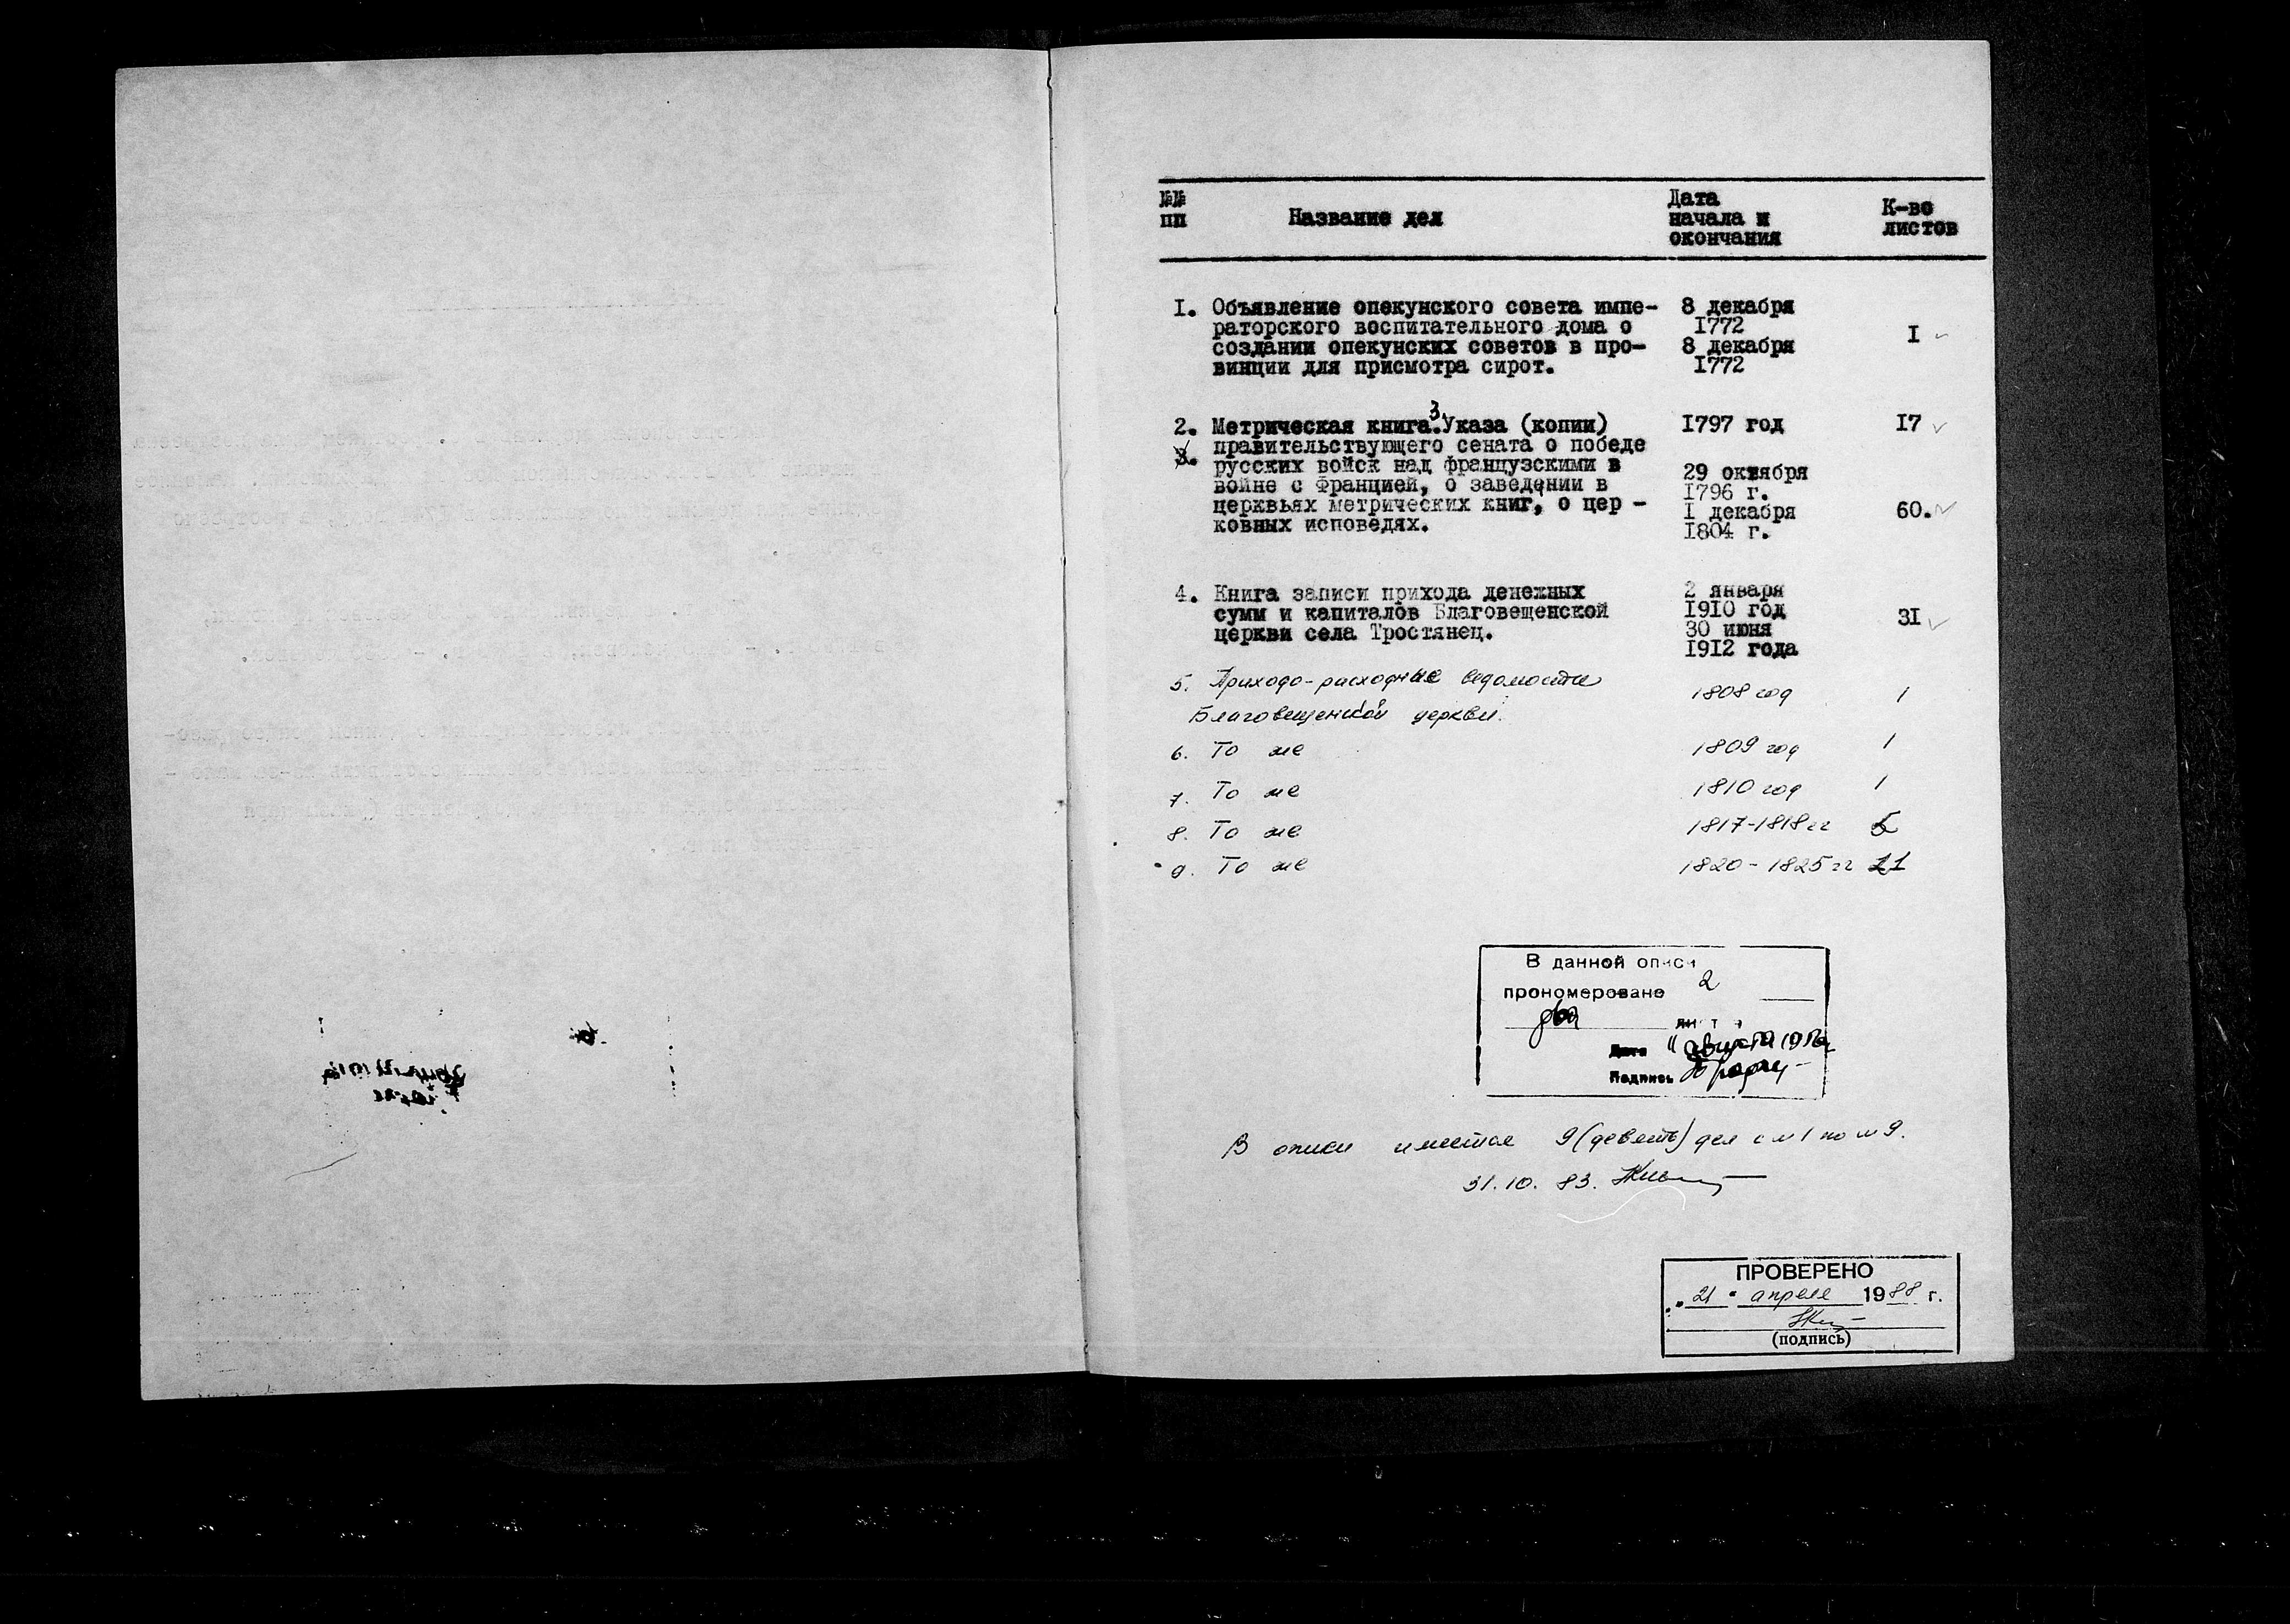 №№ пп Название дел Дата начала и окончания К-во листов
1. Объявление опекунского совета импе- 8 декабря
раторского воспитательного дома о 1772
создании опекунских советов в про- 8 декабря I
винции для присмотра сирот. 1772
2. Метрическая книга. 3. Указа (копии) 1797 год 17
3. правительствующего сената о победе
русских войск над французскими в 29 октября
войне с Францией, о заведении в 1796 г.
церквьях метрических книг, о цер - I декабря 60.
ковных исповедях. 1804 г.
4. Книга записи прихода денежных 2 января
сумм и капиталов Благовещенской 1910 год 31
церкви села Тростянец. 30 июня
1912 года
5. Приходо-расходные ведомости 1808 год 1
Благовещенской церкви.
6. То же 1809 год 1
7. То же 1810 год 1
8. То же 1817-1818 гг 5
9. То же 1820 - 1825 гг 11
В данной описи
прономеровано 2
два листа
Дата августа
Подпись
В описи имеется 9 (девять) дел с №1 по №9.
31.10.83.
ПРОВЕРЕНО
"21" апреля 1988 г.
(подпись)